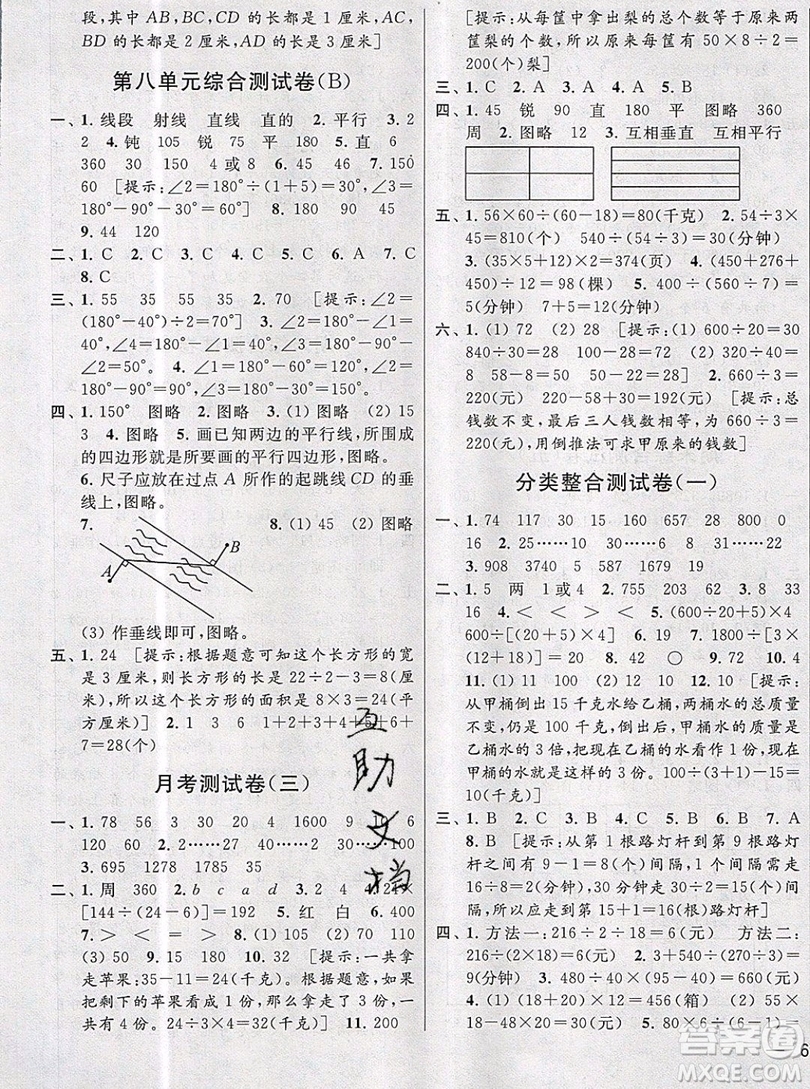 段,其中 AB,BC,CD 的长都是 1 厘米,AC,
BD 的长都是 2 厘米,AD 的长是 3 厘米]
第八单元综合测试卷(B)
一、1. 线段 射线 直线 直的 2. 平行 3. 2
2 4. 钝 105 锐 75 平 180 5. 直 6
360 30 150 4 或 8 6. 45 46 7. 150
60 [提示:∠2=180°÷(1+5)=30°,∠3=
180°-90°-30°=60°] 8. 180 90 45
9. 44 120
二、1. C 2. C 3. C 4. C 5. A 6. A 7. C
8. C
三、1. 55 35 55 35 2. 70 [提示:∠2=
(180°-40°)÷2=70°] 3. ∠2=180°-
90°-40°=50°,∠4=180°-∠1=
180°-∠2=180°-50°=130°。
四、1. 150° 图略 2. 图略 3. (1) 图略 (2) 15
3 4. 图略 5. 画已知两边的平行线,所围成
的四边形就是所要画的平行四边形,图略。
6. 尺子应放在过点 A 所作的起跳线 CD 的垂
线上,图略。
7. 8. (1) 45 (2) 图略
A B
(3) 作垂线即可,图略。
五、1. 24 [提示:根据题意可知这个长方形的宽
是 3 厘米,则长方形的长是 22÷2-3=8(厘
米),所以长方形的面积是 8×3=24(平
方厘米)] 2. 1 3 6 1+2+3+4+5+6+
7=28(个)
月考测试卷(三)
一、1. 78 56 3 30 20 4 1600 9 10 6
120 60 2. 2……2 40 30……100
3. 695 1278 1785 35
二、1. 周 360 2. b c a d 3. 2 4.
[144÷(24-6)]=192 5. 红 白 6. 400
7. > < = > 8. (1) 105 (2) 70 110
(3) 50 9. 15 180 10. 33 [提示:一共拿
走苹果:35-11=24(个)。根据题意,如果
把剩下的苹果看成 1 份,那么拿走了 3 份,共
有 24÷(4-1)×4=32(克)] 11. 200
互助文档
[提示:从每筐中拿出梨的总个数等于原来两
筐梨的个数,所以原来每筐有 50×8÷2=
200(个)梨]
三、1. C 2. A 3. C 4. A 5. B
四、1. 45 锐 90 直 180 平 图略 360
周 2. 图略 12 3. 互相垂直 互相平行
五、1. 56×60÷(60-18)=80(千克) 2. 54÷3×
45=810(个) 540÷(54÷3)=30(分钟)
3. (35×5+12)×2=374(页) 4. (450+276+
450)÷12=98(棵) 5. (600-120×3)÷120×3=
5(分钟) 7+5=12(分钟)
六、1. (1) 72 (2) 28 [提示:(1) 600÷20=30
840÷30=28 (2) 600-20=580 580÷
8 58-8=50] 2. 220-58=
220(元) 220-58+30=192(元) [提示:总
钱数不变,最后三人钱数相等,为 660÷3=
220(元),用倒推法可求甲原来的钱数]
分类整合测试卷(一)
一、1. 74 117 30 15 160 657 28 800 0
16 10 2. 5……20 8……15 31……22
3. 908 3740 5 1587 1679 19
二、1. 5 两 1 或 4 2. 755 203 62 3. 8 33
16 4. < < > < 5. (600÷20+5)×4
600÷[(20+5)×4] 6. 15 19 7. 1800÷[3×
(12+18)]=20 8. 42 9. ○ 10. 4
11. (1) 21 (2) 0 12. 60 [提示:
从甲桶倒出 15 千克水给乙桶,两桶水的总质量
不变,仍是 100 千克,倒出后,甲桶水的质量是
乙桶水的 3 倍,把现在乙桶的水看作 1 份,现在
甲桶的水就是这样的 3 份。
(千克)]
三、1. B 2. B 3. C 4. A 5. B 6. C 7. A
8. B [提示:从第 1 根路灯杆到第 9 根路灯
杆之间有 9-1=8(个)间隔,1 个间隔走
16÷8=2(分钟),30 分钟走
隔,所以到第 15+1=16(根)路灯杆]
四、1. 方法一:216÷2÷18=6(元) 方法二:
216÷(2×18)=6(元) 2. 540÷(240÷4)=
9(分钟) 3. 480÷40-480÷96=7(元)
4. (1) (18+20)×12=456(箱) (2)
(20-18)×12=24(箱) 5. 80÷8×6=60(元)
6